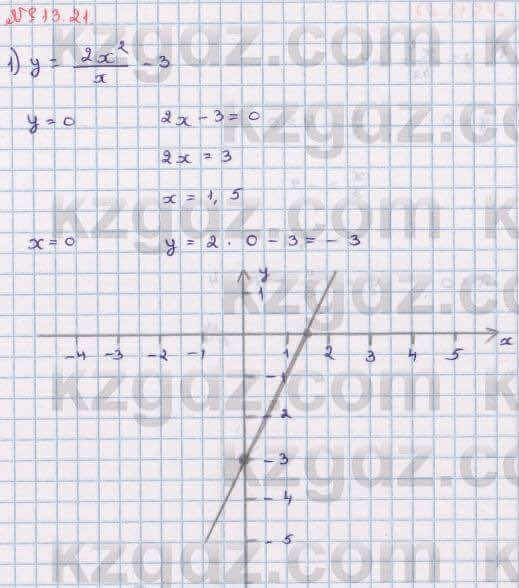 № 13.21
1) y = 2x²/x - 3
y = 0 2x - 3 = 0
2x = 3
x = 1,5
x = 0 y = 2 · 0 - 3 = - 3
y
1
-4 -3 -2 -1 1 2 3 4 5 x
-1
-2
-3
-4
-5
kzgdz.com
kzgdz.com
kzgdz.com
kzgdz.com
kzgdz.com
kzgdz.com
kzgdz.com